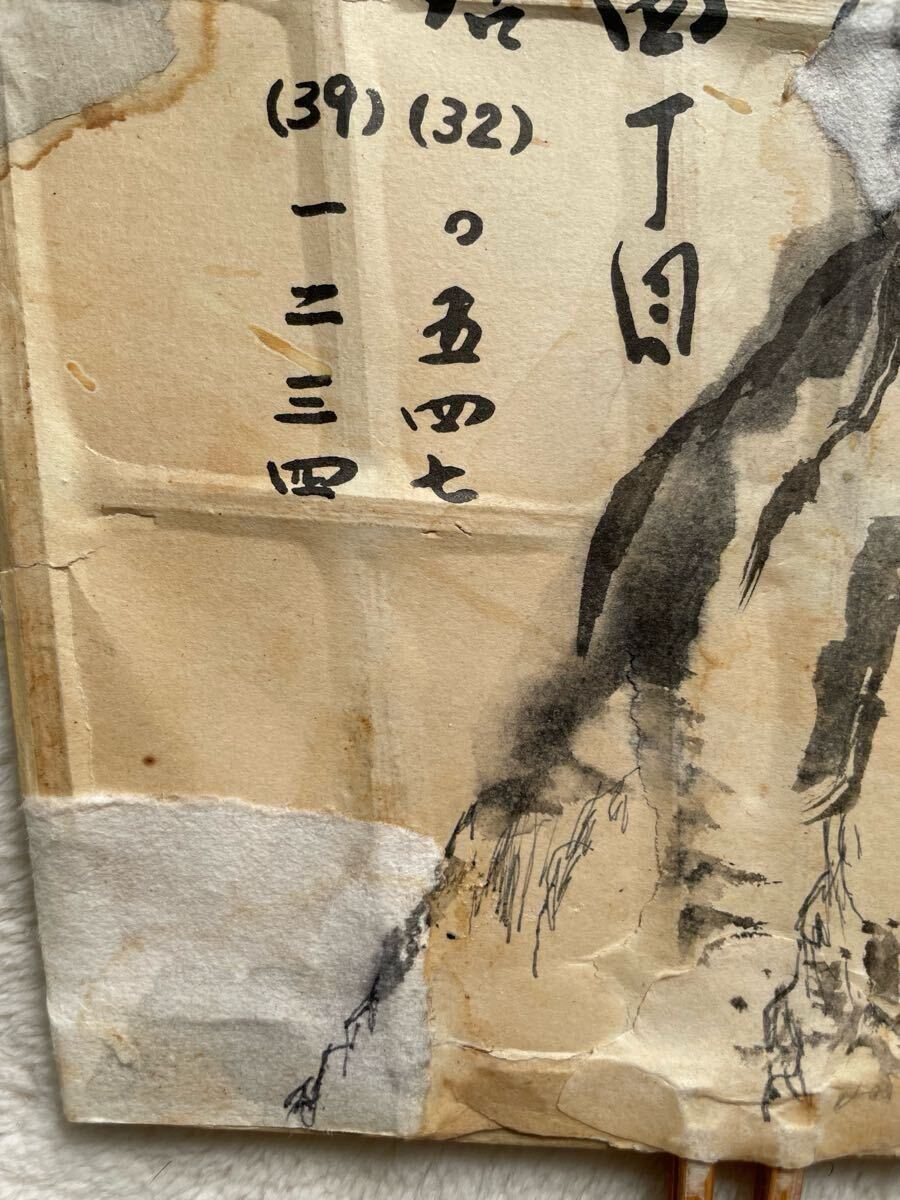 丁目
(32)〇五四七
(39)一二三四